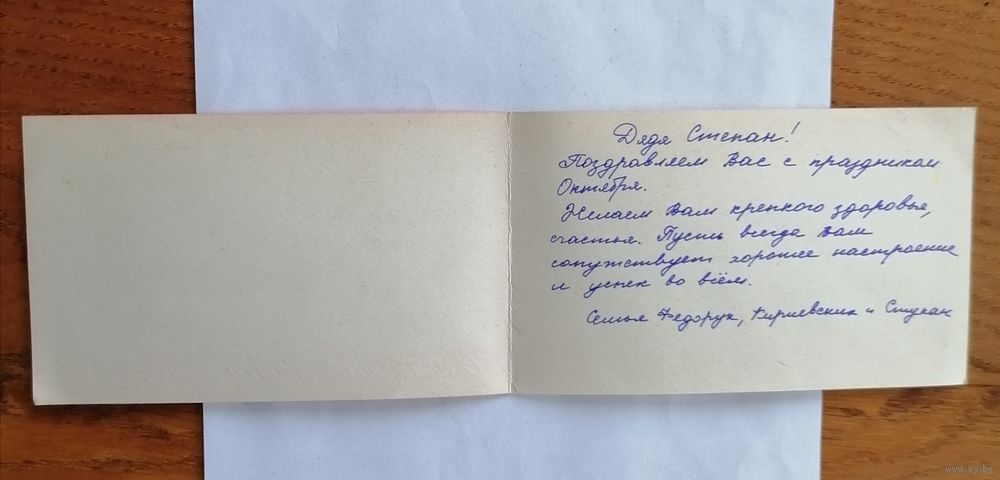 Дядя Степан!
Поздравляем Вас с праздником
Октября.
Желаем Вам крепкого здоровья,
счастья. Пусть всегда Вам
сопутствует хорошее настроение
и успех во всём.
Семья Федорук, и Стукан
www.ay.by